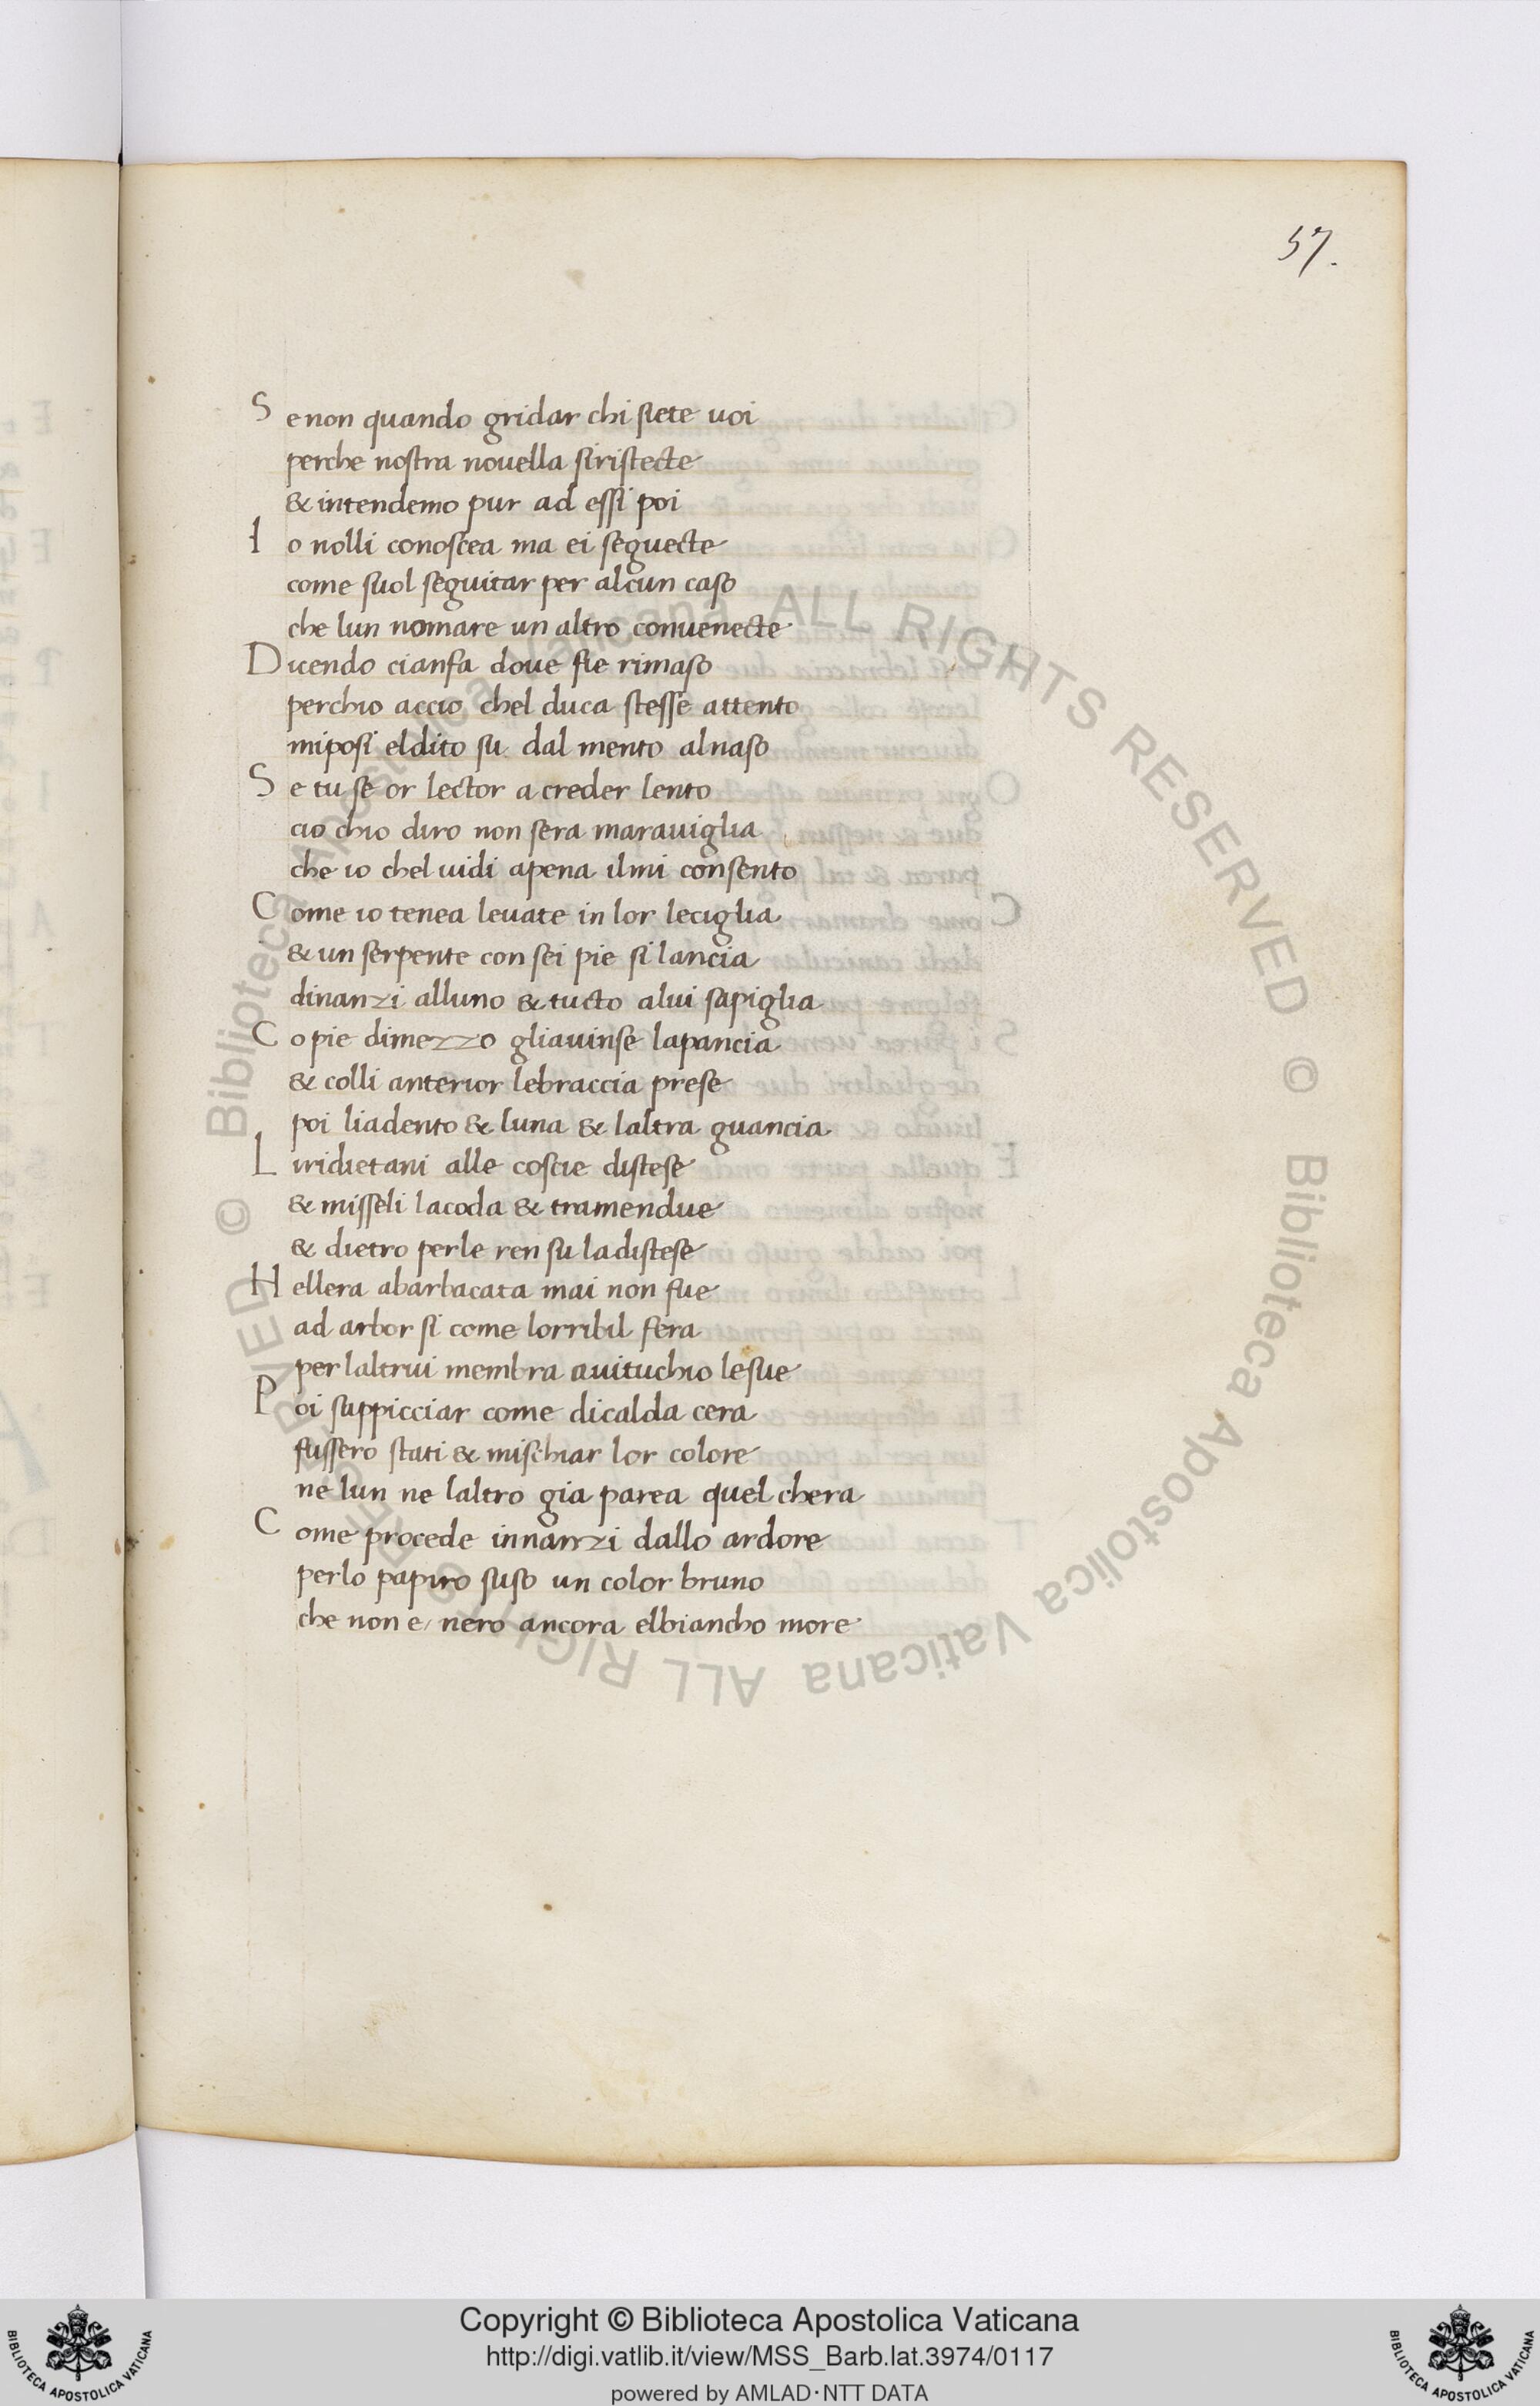 57.
Se non quando gridar chi siete uoi
perche nostra nouella siristecte
& intendemo pur ad essi poi
Io nolli conoscea ma ei seguecte
come suol seguitar per alcun caso
che lun nomare un altro conuenecte
Dicendo cianfa doue fie rimaso
perchio accio chel duca stesse attento
miposi eldito su dal mento alnaso
Se tu se or lector a creder lento
cio chio diro non sera marauiglia
che io chel uidi apena ilmi consento
Come io tenea leuate in lor leciglia
& un serpente con sei pie si lancia
dinanzi alluno & tucto alui sapiglia
Co pie dimezzo gliauinse lapancia
& colli anterior lebraccia prese
poi liadento & luna & laltra guancia
Liridietani alle coscie distese
& misseli lacoda & tramendue
& dietro perle ren su ladistese
Hellera abarbacata mai non fue
ad arbor si come lorribil fera
per laltrui membra auituchio lesue
Poi sappicciar come dicalda cera
fussero stati & mischiar lor colore
ne lun ne laltro gia parea quel chera
Come procede innanzi dallo ardore
perlo papiro suso un color bruno
che non e/ nero ancora elbiancho more
© Biblioteca Apostolica Vaticana ALL RIGHTS RESERVED © Biblioteca Apostolica Vaticana ALL RIGHTS RESERVED
BIBLIOTECA APOSTOLICA VATICANA
Copyright © Biblioteca Apostolica Vaticana
http://digi.vatlib.it/view/MSS_Barb.lat.3974/0117
powered by AMLAD·NTT DATA
BIBLIOTECA APOSTOLICA VATICANA